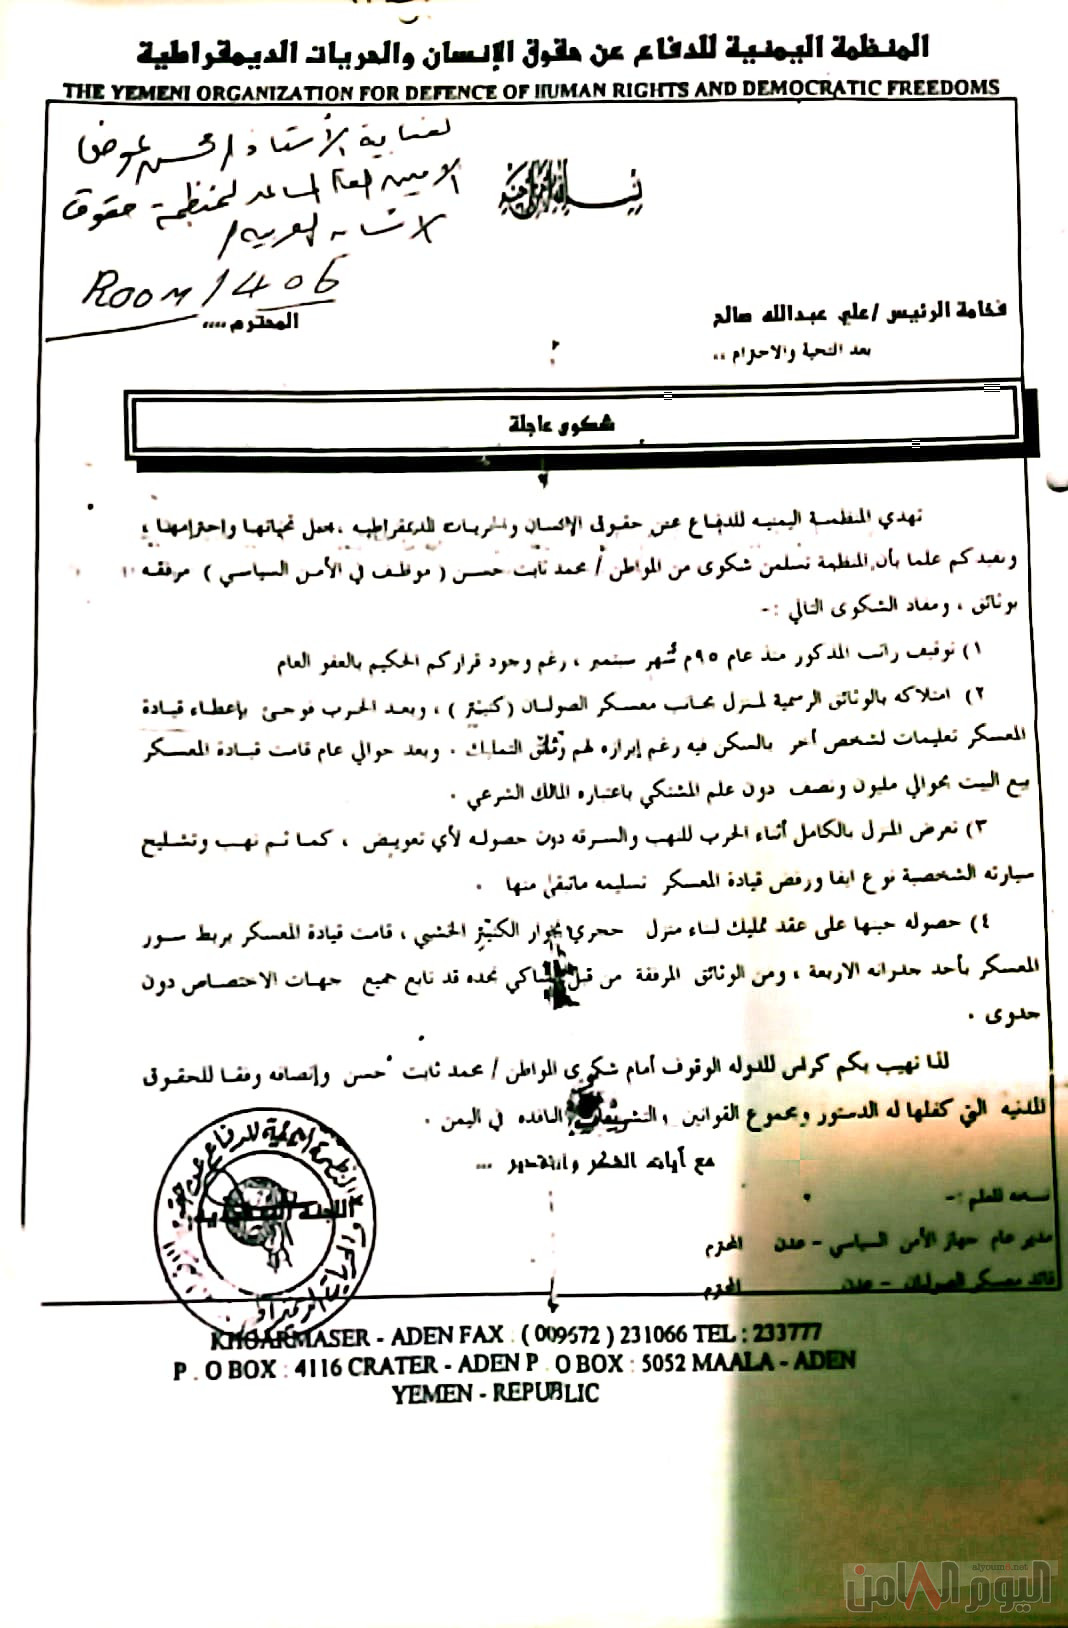 المنظمة اليمنية للدفاع عن حقوق الإنسان والحريات الديمقراطية
THE YEMENI ORGANIZATION FOR DEFENCE OF HUMAN RIGHTS AND DEMOCRATIC FREEDOMS
لعناية الأستاذ / محسن عوض
الامين العام المساعد لمنظمة حقوق
الانسان العربية /
ROOM / 406
فخامة الرئيس / علي عبدالله صالح المحترم ....
بعد التحية والاحترام ..
شكوى عاجلة
تهدي المنظمة اليمنيه للدفاع عن حقوق الإنسان والحريات الديمقراطيه ، تحياتها واحترامها ،
ونفيدكم علما بأن المنظمة تسلمت شكوى من المواطن / محمد ثابت حسن ( موظف في الأمن السياسي ) مرفقه
بوثائق ، ومفاد الشكوى التالي :-
١) توقيف راتب المذكور منذ عام ٩٥م شهر سبتمبر ، رغم وجود قراركم الحكيم بالعفو العام
٢) امتلاكه بالوثائق الرسمية لمنزل بجانب معسكر الصولبان (كنيتر ) ، وبعد الحرب فوجئ بإعطاء قيادة
المعسكر تعليمات لشخص آخر بالسكن فيه رغم إبرازه لهم وثائق التمليك . وبعد حوالي عام قامت قيادة المعسكر
بيع البيت بحوالي مليون ونصف دون علم المشتكي باعتباره المالك الشرعي .
٣) تعرض المنزل بالكامل أثناء الحرب للنهب والسرقه دون حصوله لأي تعويض ، كما تم نهب وتشليح
سيارته الشخصية نوع ايفا ورفض قيادة المعسكر تسليمه ماتبقى منها .
٤) حصوله حينها على عقد تمليك لبناء منزل حجري بجوار الكنيتر الخشبي ، قامت قيادة المعسكر بربط سور
المعسكر بأحد جدرانه الاربعة ، ومن الوثائق المرفقة من قبل الشاكي نجده قد تابع جميع جهات الاختصاص دون
جدوى .
لذا نهيب بكم كراس للدوله الوقوف أمام شكوى المواطن / محمد ثابت حسن وإنصافه وفقا للحقوق
المدنيه التي كفلها له الدستور ومجموع القوانين والتشريعات النافذه في اليمن .
مع آيات الشكر والتقدير ...
نسخه للعلم :-
مدير عام جهاز الأمن السياسي - عدن المحترم
قائد معسكر الصولبان - عدن المحترم
KHOARMASER - ADEN FAX : ( 009672 ) 231066 TEL : 233777
P . O BOX : 4116 CRATER - ADEN P . O BOX : 5052 MAALA - ADEN
YEMEN - REPUBLIC
alyoum8.net
اليوم الثامن